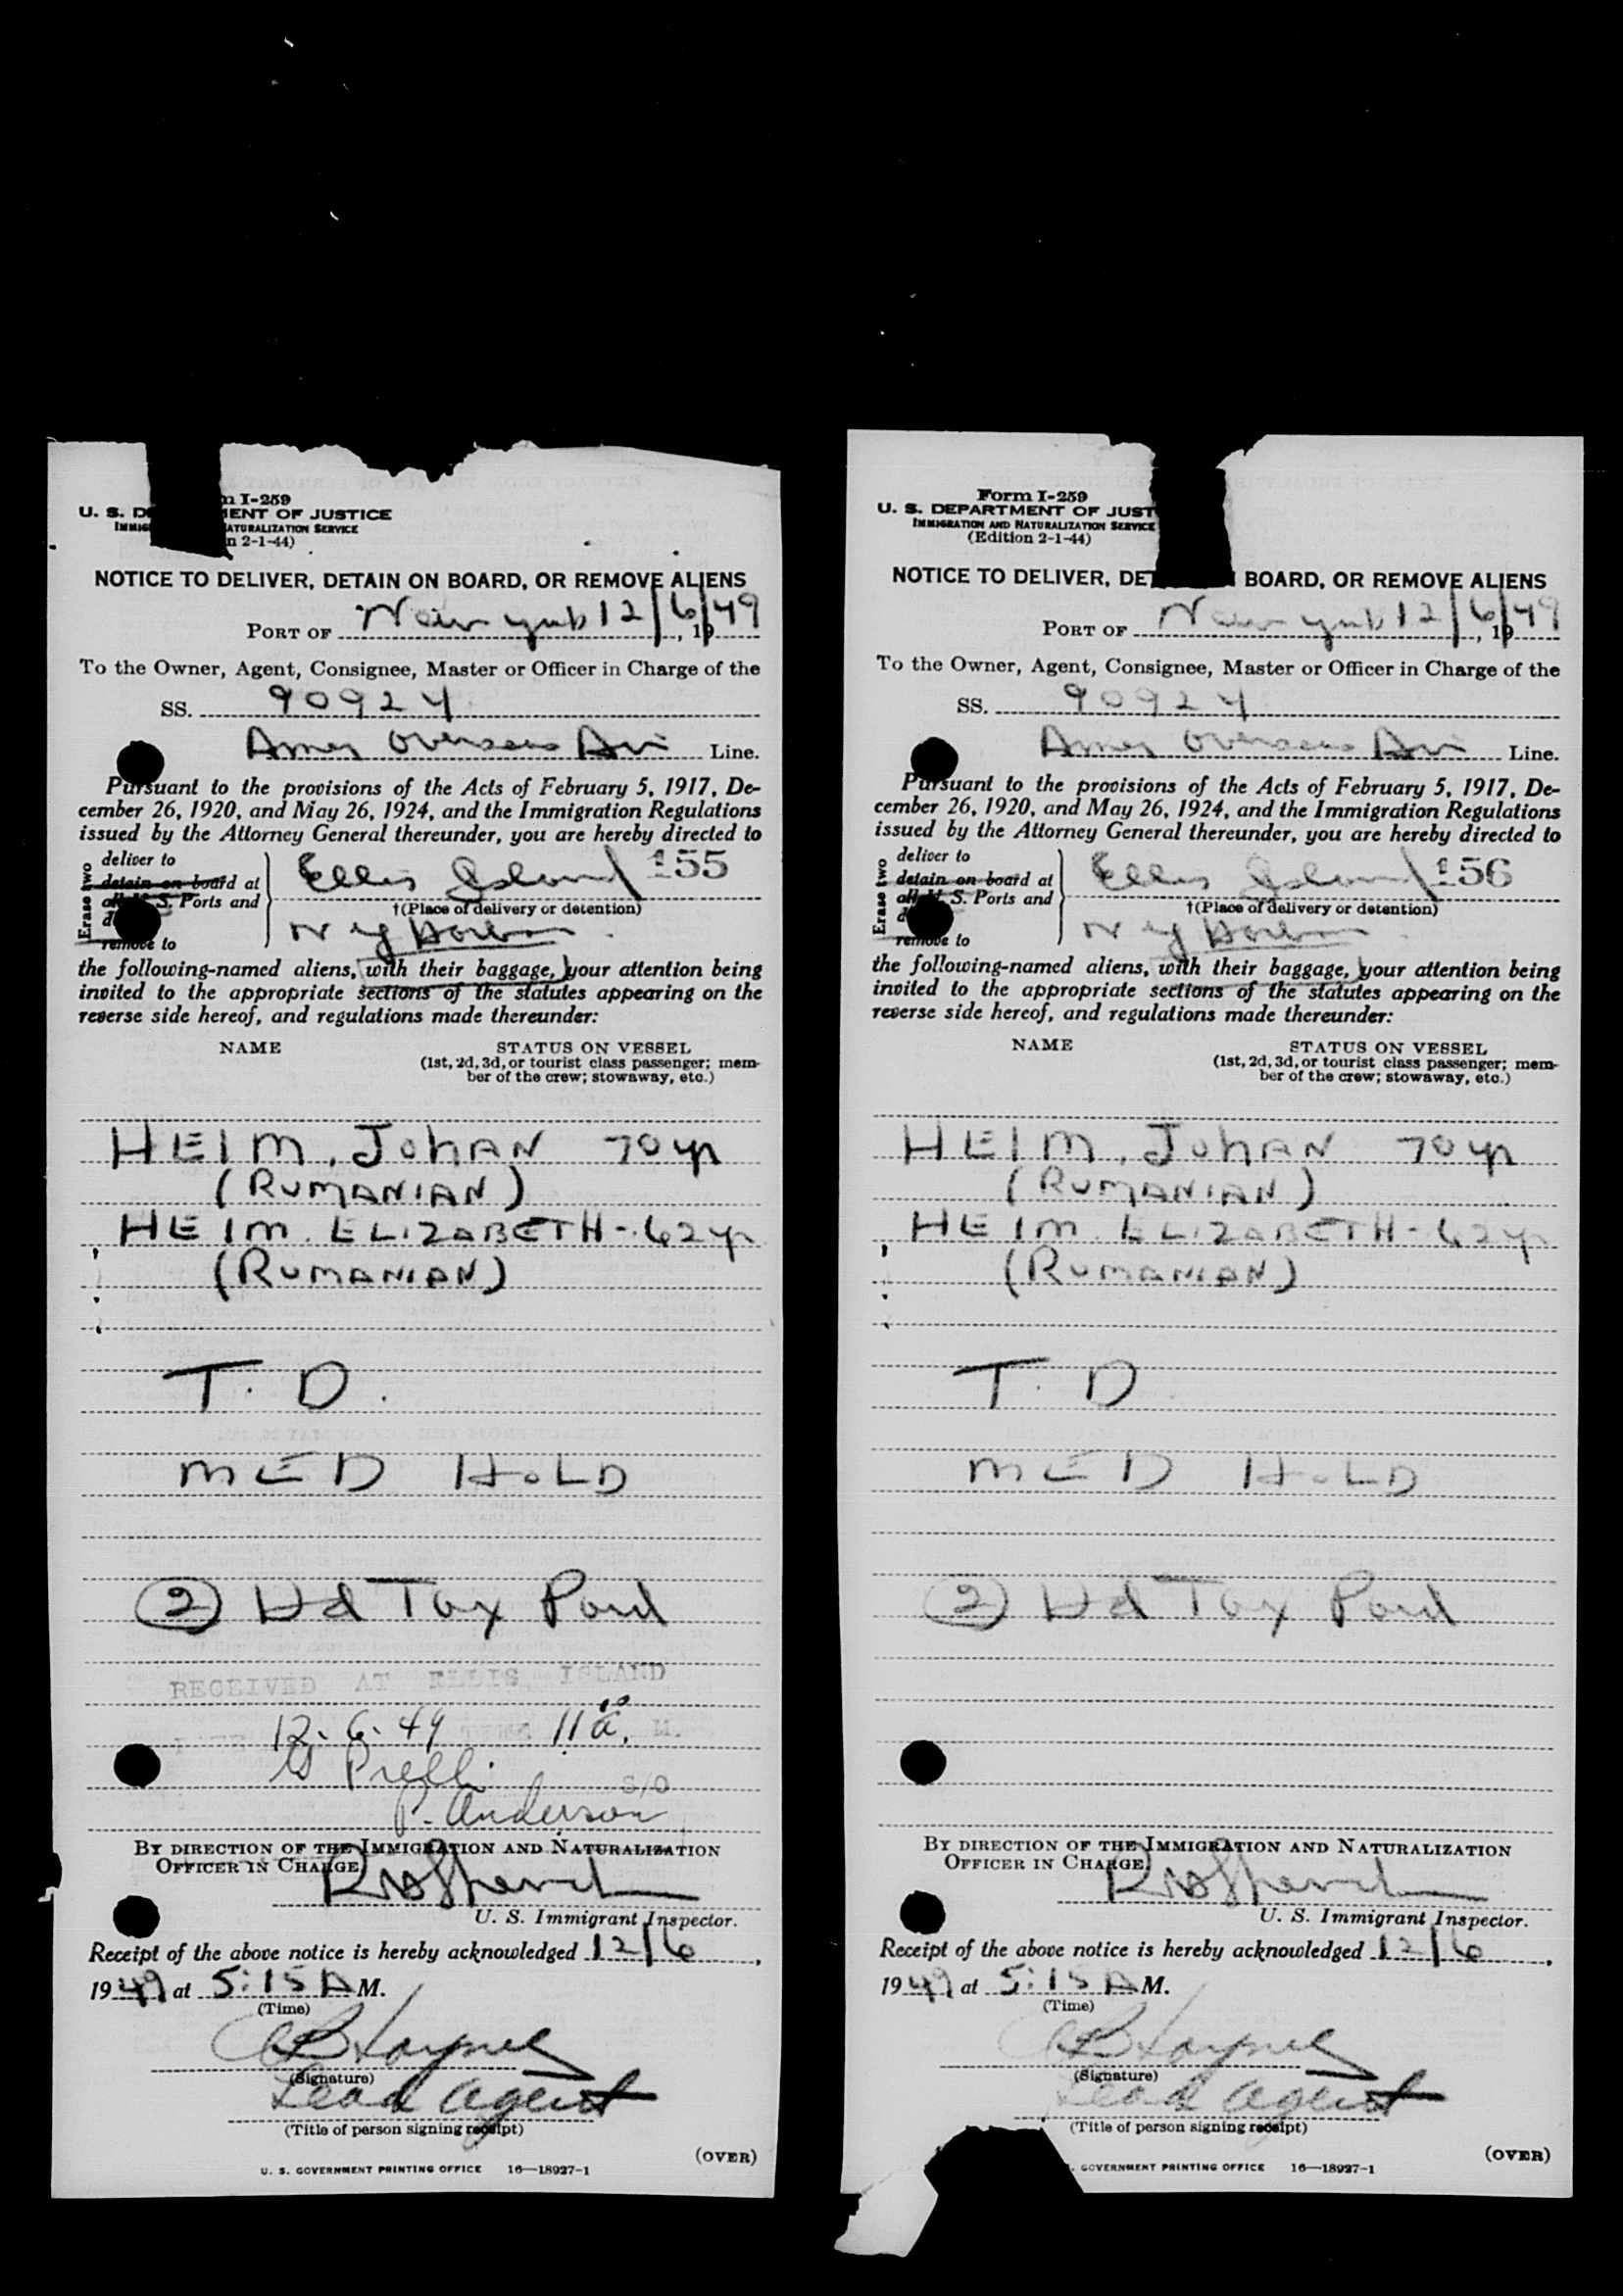 m I-259
U. S. DE MENT OF JUSTICE
IMMIG ATURALIZATION SERVICE
n 2-1-44)
NOTICE TO DELIVER, DETAIN ON BOARD, OR REMOVE ALIENS
PORT OF New York 12/6/49, 19
To the Owner, Agent, Consignee, Master or Officer in Charge of the
SS. 90924
Amer Overseas Air Line.
Pursuant to the provisions of the Acts of February 5, 1917, De-
cember 26, 1920, and May 26, 1924, and the Immigration Regulations
issued by the Attorney General thereunder, you are hereby directed to
Erase two
deliver to
detain on board at
all U. S. Ports and
d
remove to
Ellis Island 155
†(Place of delivery or detention)
N Y Harbor
the following-named aliens, with their baggage, your attention being
invited to the appropriate sections of the statutes appearing on the
reverse side hereof, and regulations made thereunder:
NAME STATUS ON VESSEL
(1st, 2d, 3d, or tourist class passenger; mem-
ber of the crew; stowaway, etc.)
HEIM, JOHAN 70 yr
(RUMANIAN)
HEIM. ELIZABETH - 62 yr
(RUMANIAN)
T. D.
MED HOLD
(2) Hd Tax Paid
RECEIVED AT ELLIS ISLAND
12. 6. 49 TIME 11 10 a. M.
Prelli
S/O
P. Anderson
BY DIRECTION OF THE IMMIGRATION AND NATURALIZATION
OFFICER IN CHARGE
U. S. Immigrant Inspector.
Receipt of the above notice is hereby acknowledged 12/6,
1949 at 5:15 A M.
(Time)
(Signature)
Lead Agent
(Title of person signing receipt)
(OVER)
U. S. GOVERNMENT PRINTING OFFICE 16—18927-1
Form I-259
U. S. DEPARTMENT OF JUST
IMMIGRATION AND NATURALIZATION SERVICE
(Edition 2-1-44)
NOTICE TO DELIVER, DET BOARD, OR REMOVE ALIENS
PORT OF New York 12/6/49, 19
To the Owner, Agent, Consignee, Master or Officer in Charge of the
SS. 90924
Amer Overseas Air Line.
Pursuant to the provisions of the Acts of February 5, 1917, De-
cember 26, 1920, and May 26, 1924, and the Immigration Regulations
issued by the Attorney General thereunder, you are hereby directed to
Erase two
deliver to
detain on board at
all U. S. Ports and
d
remove to
Ellis Island 156
†(Place of delivery or detention)
N Y Harbor
the following-named aliens, with their baggage, your attention being
invited to the appropriate sections of the statutes appearing on the
reverse side hereof, and regulations made thereunder:
NAME STATUS ON VESSEL
(1st, 2d, 3d, or tourist class passenger; mem-
ber of the crew; stowaway, etc.)
HEIM, JOHAN 70 yr
(RUMANIAN)
HEIM ELIZABETH - 62 yr
(RUMANIAN)
T. D
MED HOLD
(2) Hd Tax Paid
BY DIRECTION OF THE IMMIGRATION AND NATURALIZATION
OFFICER IN CHARGE
U. S. Immigrant Inspector.
Receipt of the above notice is hereby acknowledged 12/6,
1949 at 5:15 A M.
(Time)
(Signature)
Lead Agent
(Title of person signing receipt)
(OVER)
. GOVERNMENT PRINTING OFFICE 16—18927-1